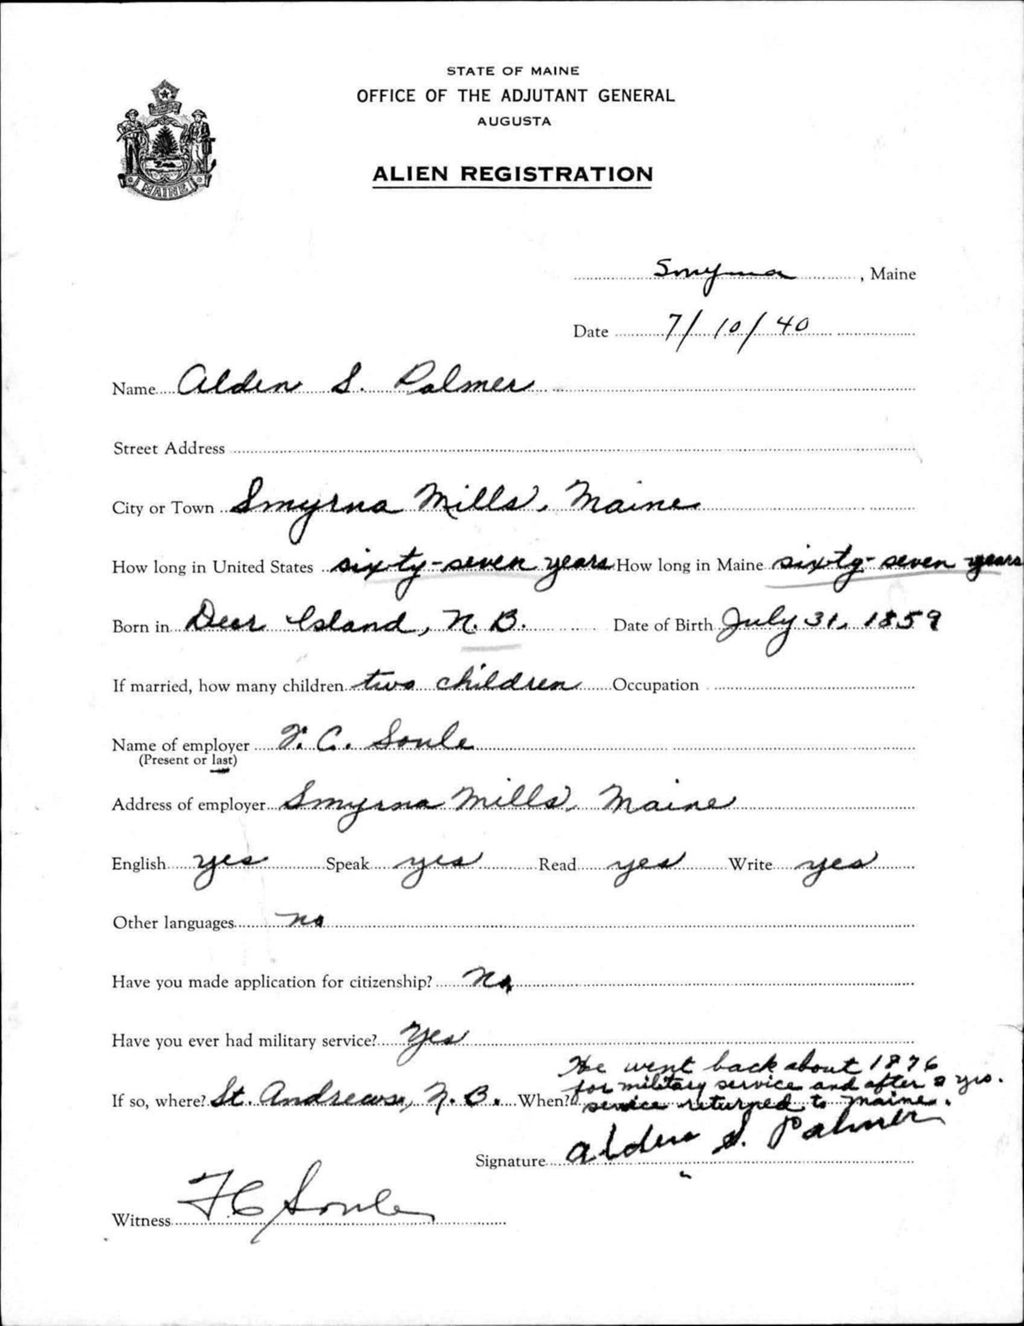 STATE OF MAINE
OFFICE OF THE ADJUTANT GENERAL
AUGUSTA
ALIEN REGISTRATION
MAINE
Smyrna, Maine
Date 7/10/40
Name Alden S. Palmer
Street Address
City or Town Smyrna Mills, Maine
How long in United States sixty-seven years How long in Maine sixty-seven years
Born in Deer Island, N.B. Date of Birth July 31, 1859
If married, how many children two children Occupation
Name of employer F. C. Soule
(Present or last)
Address of employer Smyrna Mills, Maine
English yes Speak yes Read yes Write yes
Other languages no
Have you made application for citizenship? No
Have you ever had military service? Yes
If so, where? St. Andrews, N.B. When? He went back about 1876
for military service and after 2 yrs.
service returned to Maine.
Signature Alden S. Palmer
Witness F C Soule